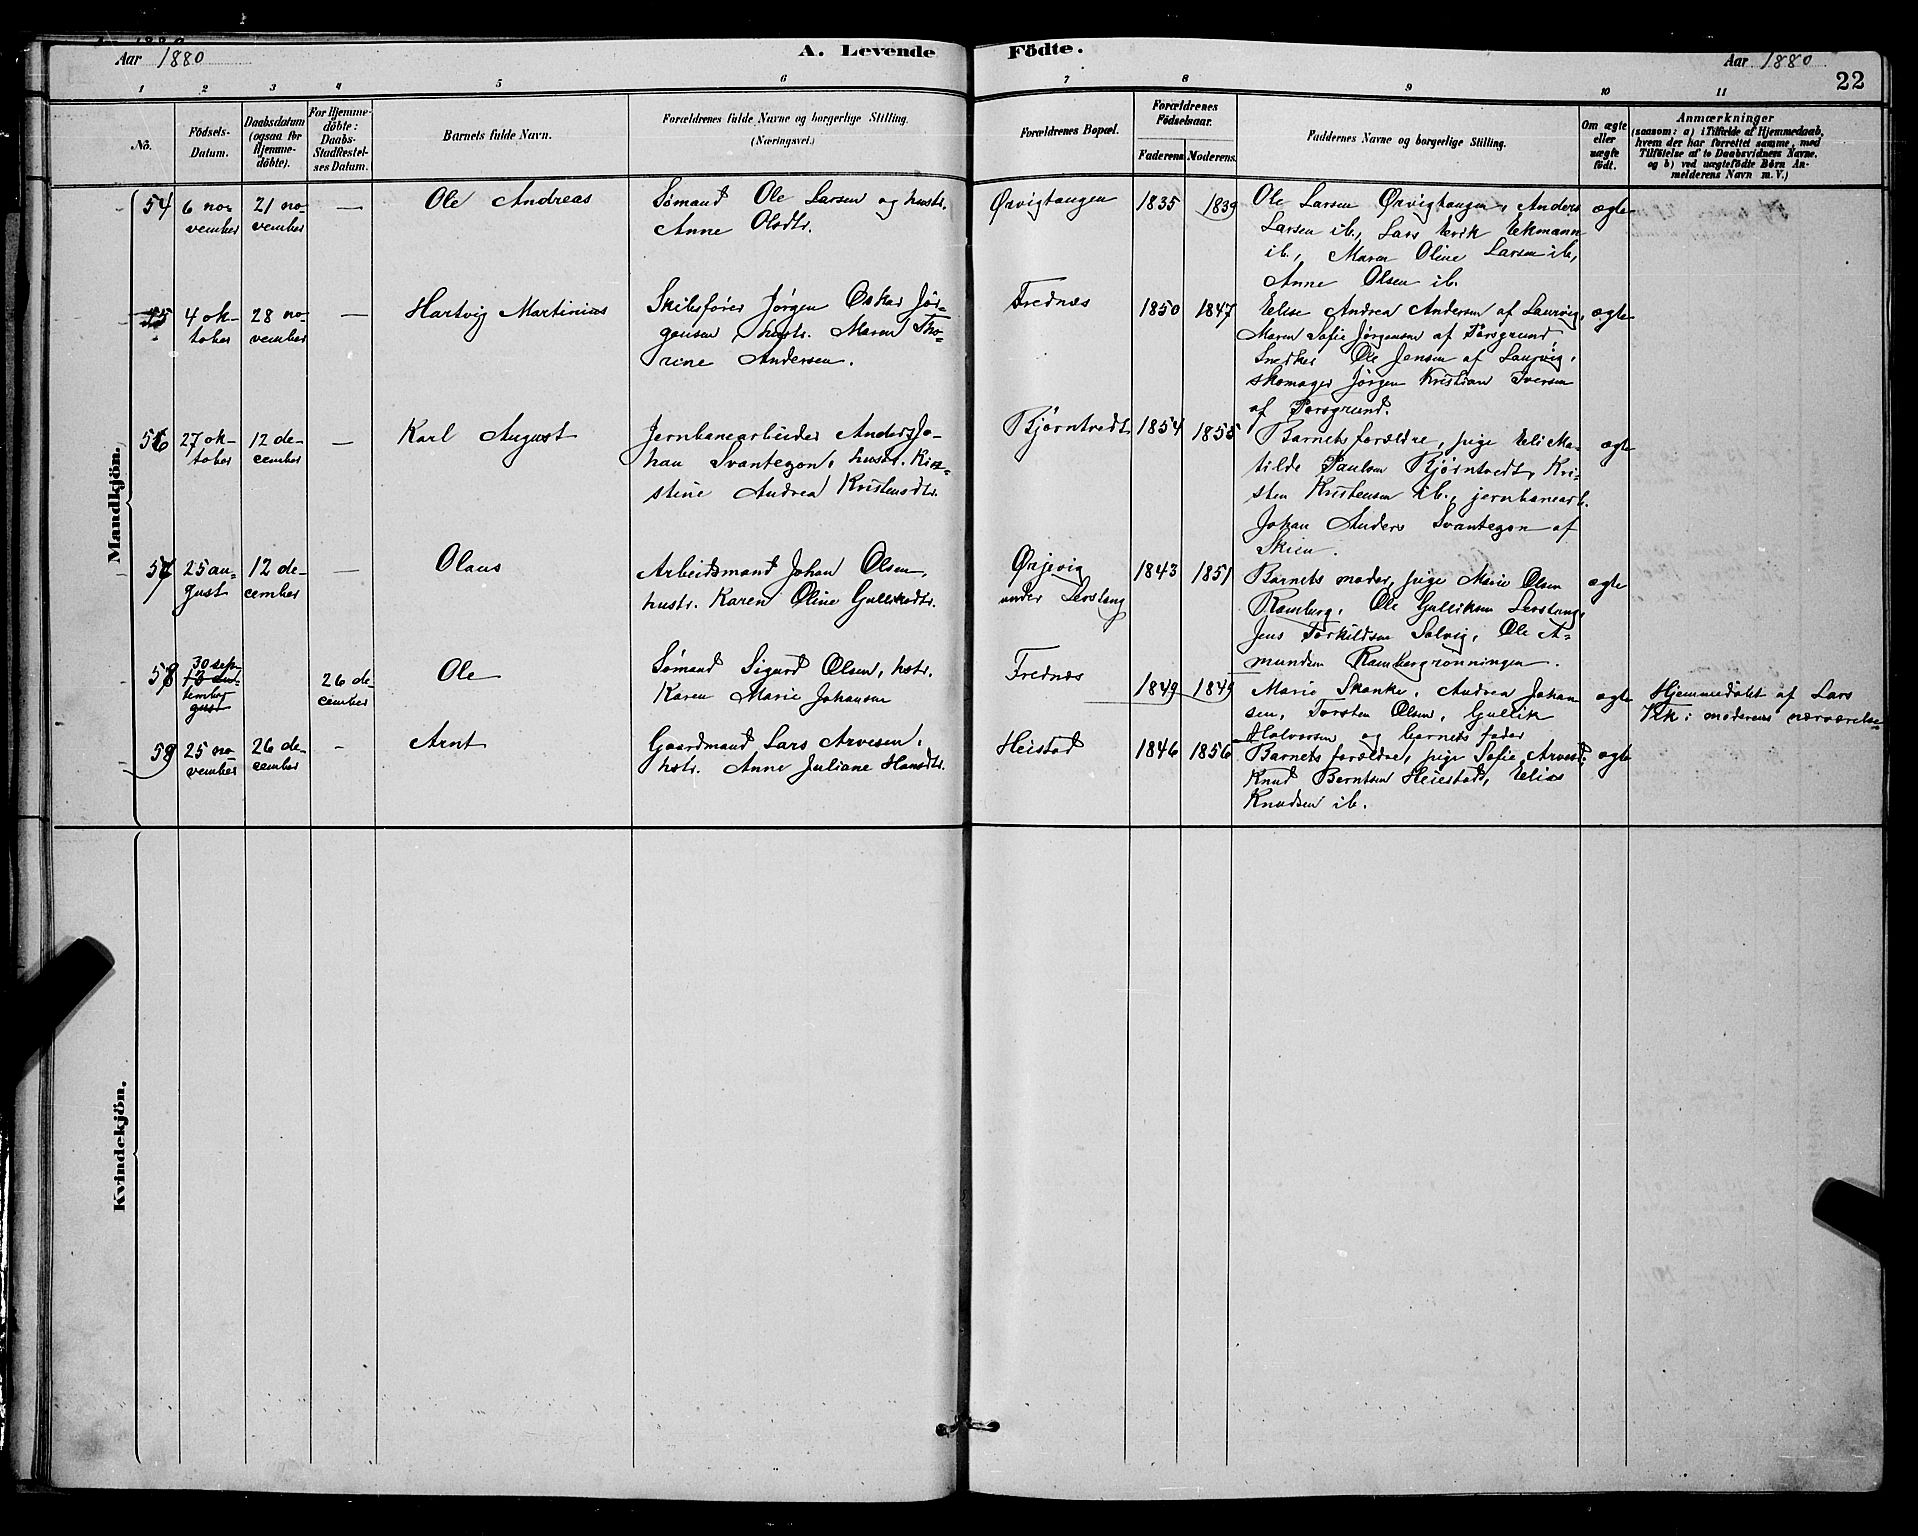 Aar 1880
A. Levende
Födte.
Aar 1880
22
1 2 3 4 5 6 7 8 9 10 11
No.
Födsels-
Datum.
Daabsdatum
(ogsaa for
Hjemme-
döbte).
For Hjemme-
döbte:
Daabs-
Stadfæstel-
ses Datum.
Barnets fulde Navn.
Forældrenes fulde Navne og borgerlige Stilling.
(Næringsvei.)
Forældrenes Bopæl.
Forældrenes
Födselsaar.
Faderens. Moderens.
Faddernes Navne og borgerlige Stilling.
Om ægte
eller
uægte
födt.
Anmærkninger
(saasom: a) i Tilfælde af Hjemmedaab,
hvem der har forrettet samme, med
Tilföielse af to Daabsvidners Navne,
og b) ved uægtefödte Börn An-
melderens Navn m. V.)
Mandkjön.
54
6 no-
vember
21 no-
vember
—
Ole Andreas
Sømand Ole Larsen og hustr.
Anne Olsdtr.
Ørvigtangen
1835
1839
Ole Larsen Ørvigtangen, Anders
Larsen ib., Lars Erik Ekmann
ib., Maren Oline Larsen ib,
Anne Olsen ib.
ægte
55
4 ok-
tober
28 no-
vember
—
Hartvig Martinius
Skibsfører Jørgen Oskar Jør-
gensen, hustr. Maren Tho-
rine Andersen.
Frednæs
1850
1847
Elise Andrea Andersen af Laurvig,
Maren Sofie Jørgensen af Porsgrund
Snedker Ole Jensen af Laurvig,
skomager Jørgen Kristian Iversen
af Porsgrund.
ægte
56
27 ok-
tober
12 de-
cember
—
Karl August
Jernbanearbeider Anders Jo-
han Svantegon, hustr. Kir-
stine Andrea Kristensdtr.
Bjørntvedt
1854
1855
Barnets forældre, pige Eli Ma-
tilde Paulsen Bjørntvedt, Kri-
sten Kristensen ib., jernbanearb.
Johan Anders Svantegon af
Skien.
ægte
57
25 au-
gust
12 de-
cember
—
Olaus
Arbeidsmand Johan Olsen,
hustr. Karen Oline Gulliksdtr.
Ørjevig
under Lerstang
1843
1851
Barnets moder, pige Marie Olsen
Ramberg, Ole Gulliksen Lerstang,
Jens Torkildsen Solvig, Ole A-
mundsen Rambergrønningen.
ægte
58
30 sep-
tember
gust
26 de-
cember
Ole
Sømand Sigurd Olsen, hstr.
Karen Marie Johansen
Frednæs
1849
1849
Marie Skanke, Andrea Johan
sen, Torsten Olsen, Gullik
Halvorsen og barnets fader
ægte
Hjemmedøbt af Lars
Vik i moderens nærværelse
59
25 no-
vember
26 de-
cember
-
Arnt
Gaardmand Lars Arvesen,
hstr. Anne Juliane Hansdtr.
Heistad
1846
1856
Barnets forældre, pige Sofie Arvesd.
Knud Berntsen Heiestad, Elias
Knudsen ib.
ægte
Kvindekjön.